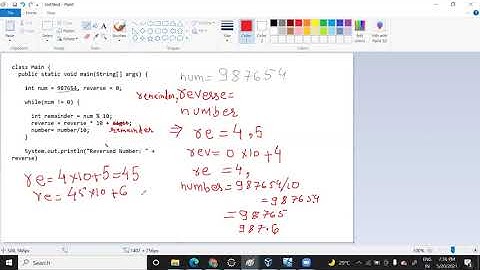 Untitled - Paint
class Main {
public static void main(String[] args) {
int num = 987654, reverse = 0;
while(num != 0) {
int remainder = num % 10;
reverse = reverse * 10 +
remainder
number= number/10;
System.out.println("Reversed Number: " +
reverse)
re=4×10+5=45
re=45×10+6
num=987654
remainder,
reverse=
number
⇒ re=4,5
rev=0×10+4
re =4,
number=987654/10
=987654
=98765
987.6
29°C
ENG
IN
7:36 PM
5/20/2021